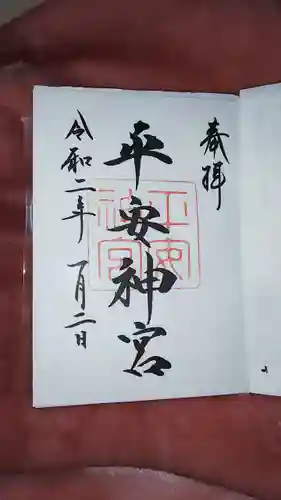 奉拝
平安神宮
平安神宮
令和二年 一月二日